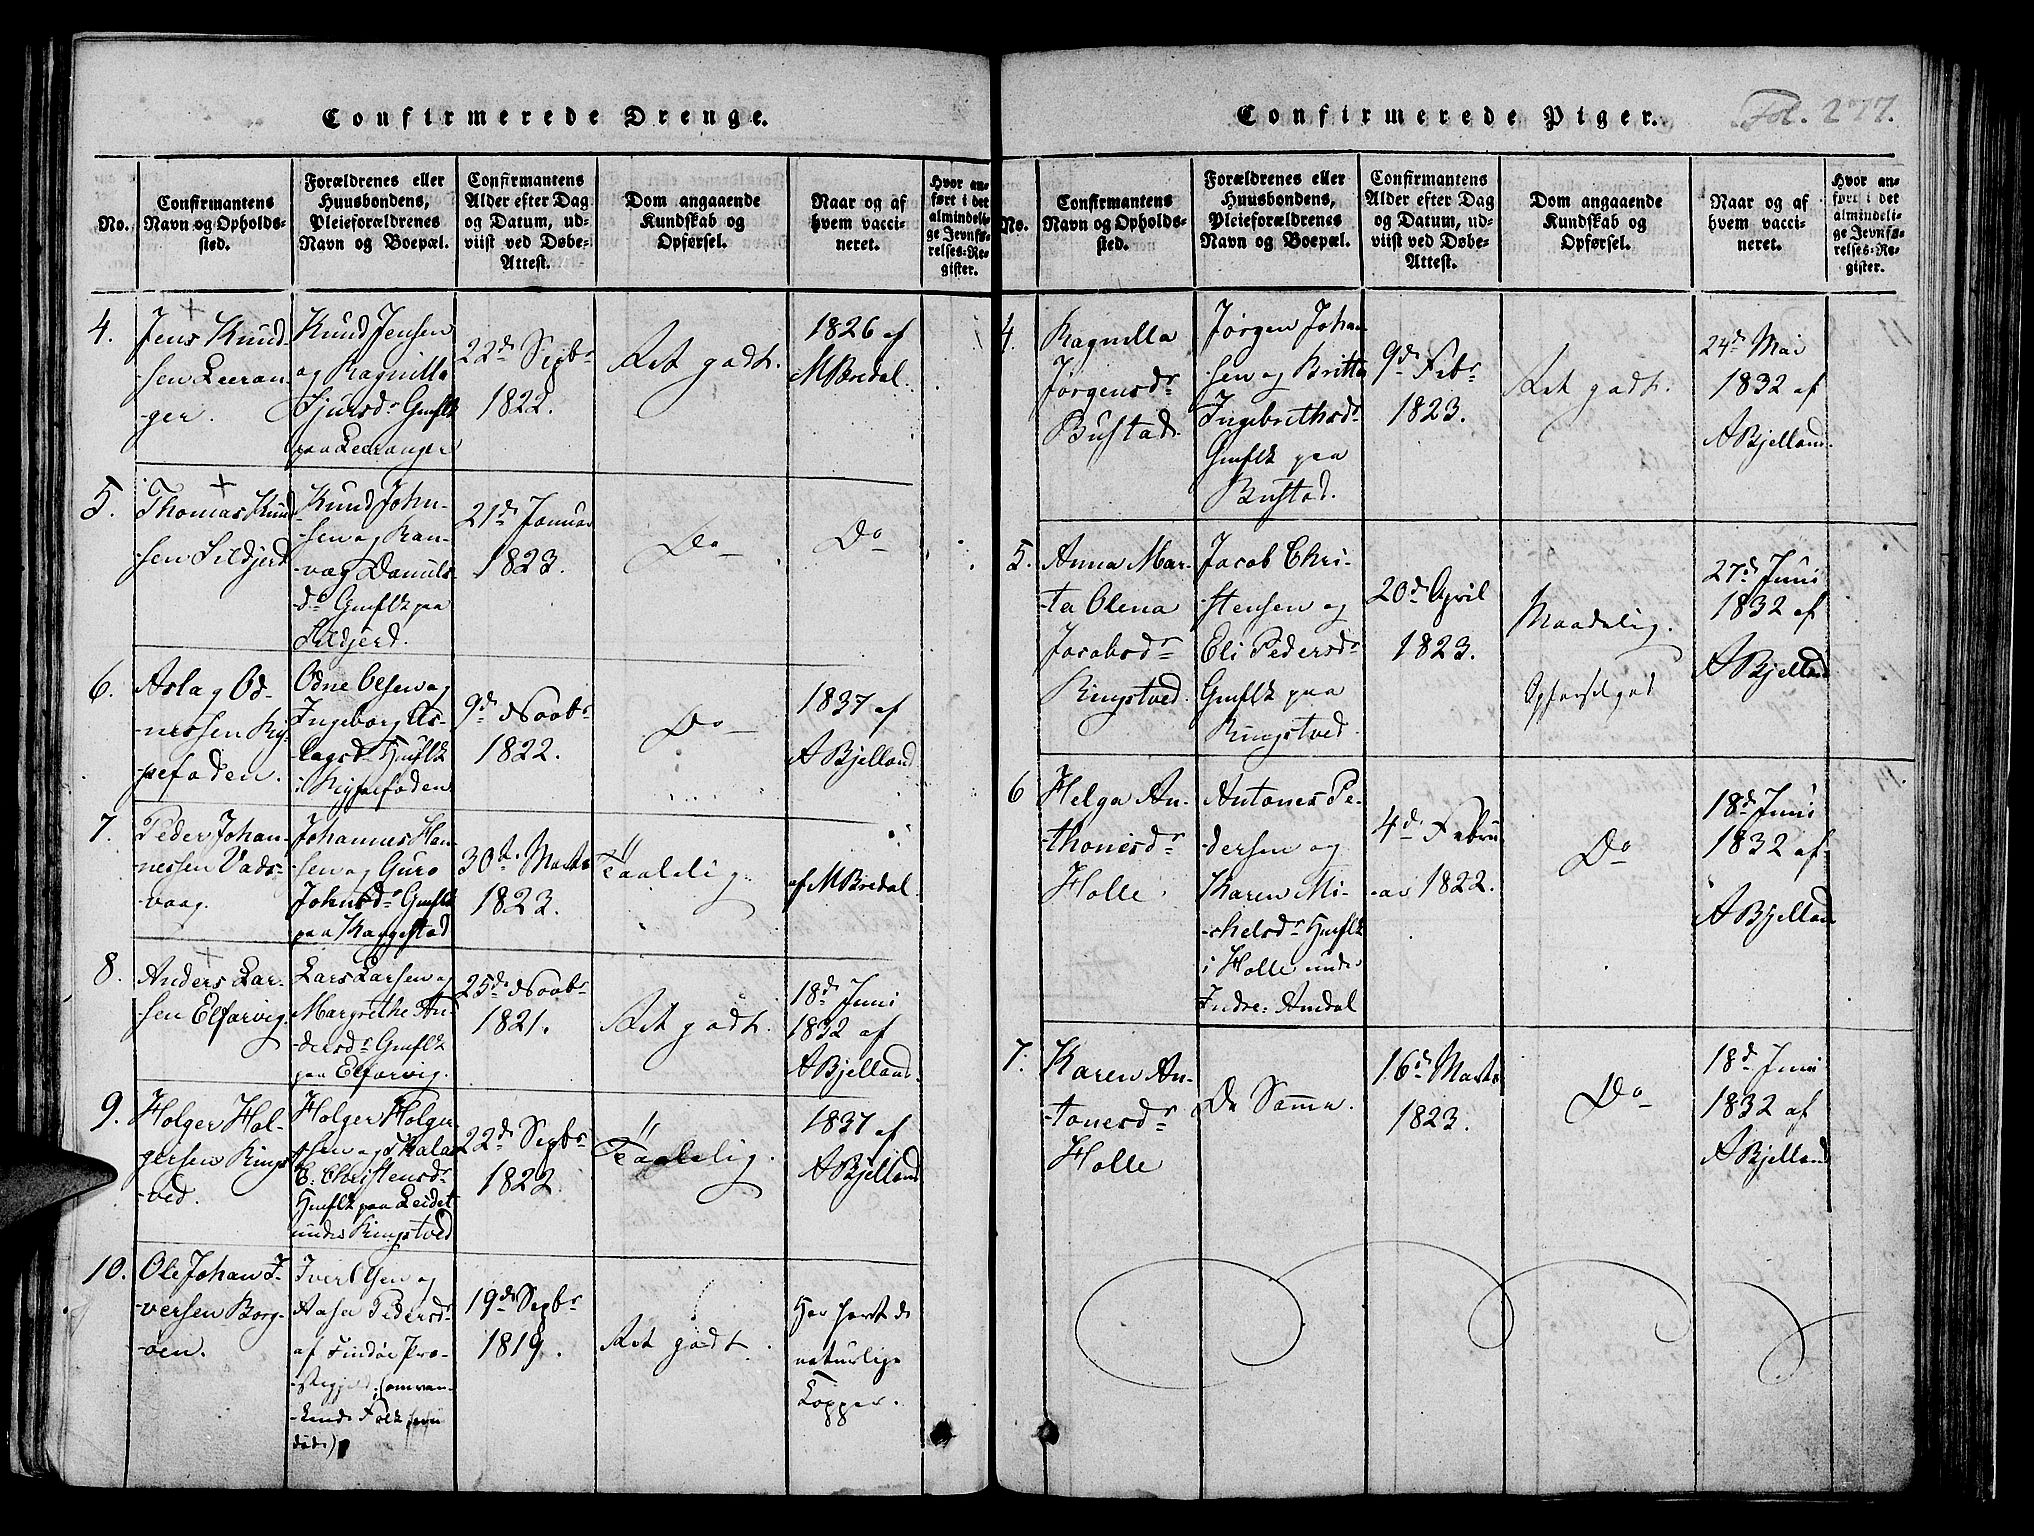 Confirmerede Drenge.
No.
Confirmantens
Navn og Opholds-
sted.
Forældrenes eller
Huusbondens,
Pleieforældrenes
Navn og Boepæl.
Confirmantens
Alder efter Dag
og Datum, ud-
viist ved Døbe-
Attest.
Dom angaaende
Kundskab og
Opførsel.
Naar og af
hvem vacci-
neret.
Hvor an-
ført i det
almindeli-
ge Jevnfø-
relses-Re-
gister.
4.
Jens Knud-
sen Leeran-
ger.
Knud Jensen
og Ragnilla
Sjursdr Gmflk
paa Leeranger
22d Sepbr
1822.
Ret godt.
1826 af
M Bredal.
5.
Thomas Knud
sen Sildjerd
Knud John-
sen og Ran-
væg Daniels-
dr Gmflk paa
Sildjerd.
21d Januar
1823.
Do
Do
6.
Aslag Od-
nessen Ry-
pefaden.
Odne Olsen og
Ingeborg As-
lagsdr Hmflk
i Rypefaden
9d Novbr
1822.
Do
1837 af
A Bjelland
7.
Peder Johan-
nessen Vads-
vaag.
Johannes Han-
sen og Guro
Johnsdr Gmflk
paa Kaggestad
30te Marts
1823.
Taalelig
af M Bredal
8.
Anders Lar-
sen Elfarvig.
Lars Larsen og
Margrethe An-
dersdr Gmflk
paa Elfarvig.
25d Novbr
1821.
Ret godt.
18d Juni
1832 af
A Bjelland.
9.
Holger Hol-
gersen Rings
-ved.
Holger Holger
sen og Malas
E. Christensdr
Hmflk paa Leidet
under Ringstved
22d Sepbr
1822.
Taalelig.
1837 af
A Bjelland
10.
Ole Johan I-
versen Borg-
øen.
Iver Olsen og
Aasa Pedersdr
af Findøe Præ-
stegjeld, (omvan-
kende Folk
døde)
19de Sepbr
1819.
Ret godt.
Har havt de
naturlige
Kopper.
Confirmerede Piger.
Fol. 277.
No.
Confirmantens
Navn og Opholds-
sted.
Forældrenes eller
Huusbondens,
Pleieforældrenes
Navn og Boepæl.
Confirmantens
Alder efter Dag
og Datum, ud-
viist ved Døbe-
Attest.
Dom angaaende
Kundskab og
Opførsel.
Naar og af
hvem vacci-
neret.
Hvor an-
ført i det
almindeli-
ge Jevnfø-
relses-Re-
gister.
4.
Ragnilla
Jørgensdr
Bustad.
Jørgen Johan-
sen og Britta
Ingebrethsdr
Gmflk paa
Bustad.
9d Febr
1823.
Ret godt.
24d Mai
1832 af
A Bjelland.
5.
Anna Mar-
ta Olena
Jacobsdr
Ringstved.
Jacob Chri-
stensen og
Eli Pedersdr
Gmflk paa
Ringstved.
20d April
1823.
Maadelig.
Opførsel god
27d Juni
1832 af
A Bjelland
6
Helga An-
thonesdr
Holle.
Antones Pe-
dersen og
Karen Mi-
chelsdr Hmflk
i Holle under
Indre: Amdal
4d Febru
-ar 1822.
Do
18d Juni
1832 af
A Bjelland
7.
Karen An-
tonesdr
Holle
De Samme.
16d Marts
1823.
Do
18d Juni
1832 af
A Bjelland